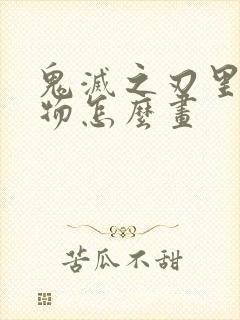 鬼滅之刃里
物怎麼畫
苦瓜不甜